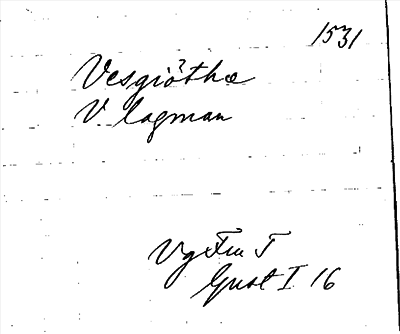 1531
Vesgiöthæ
V lagman
Vg Fru T
Gust I 16